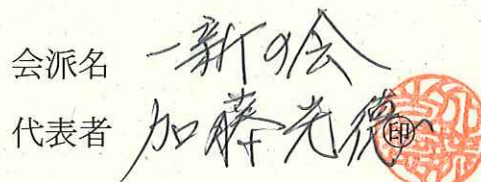 会派名 一新の会
代表者 加藤光徳 ㊞